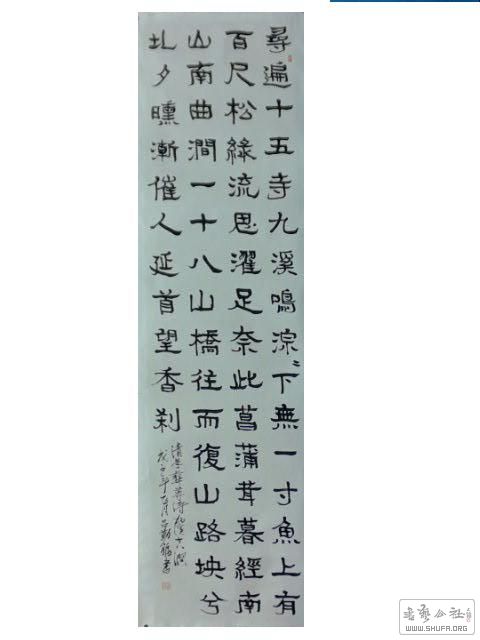 尋遍十五寺九溪鳴淙〻下無一寸魚上有
百尺松綠流思濯足奈此菖蒲茸暮經南
山南曲澗一十八山橋往而復山路坱兮
圠夕曛漸催人延首望香刹
書藝公社
WWW.SHUFA.ORG